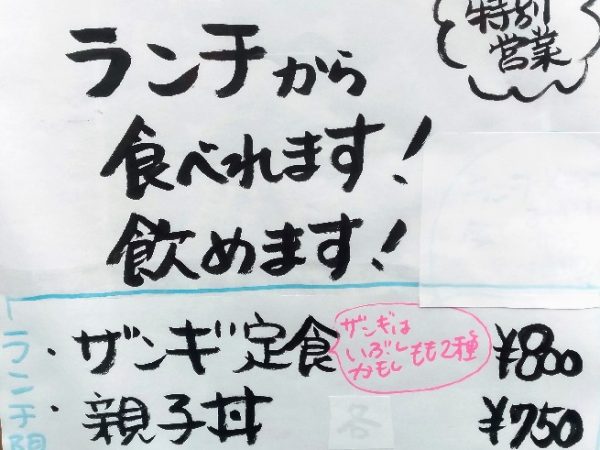 特別
営業
ランチから
食べれます!
飲めます!
・ザンギ定食
ザンギは
いぶし もも2種
かもし
¥800
・親子丼
¥750
ランチ限